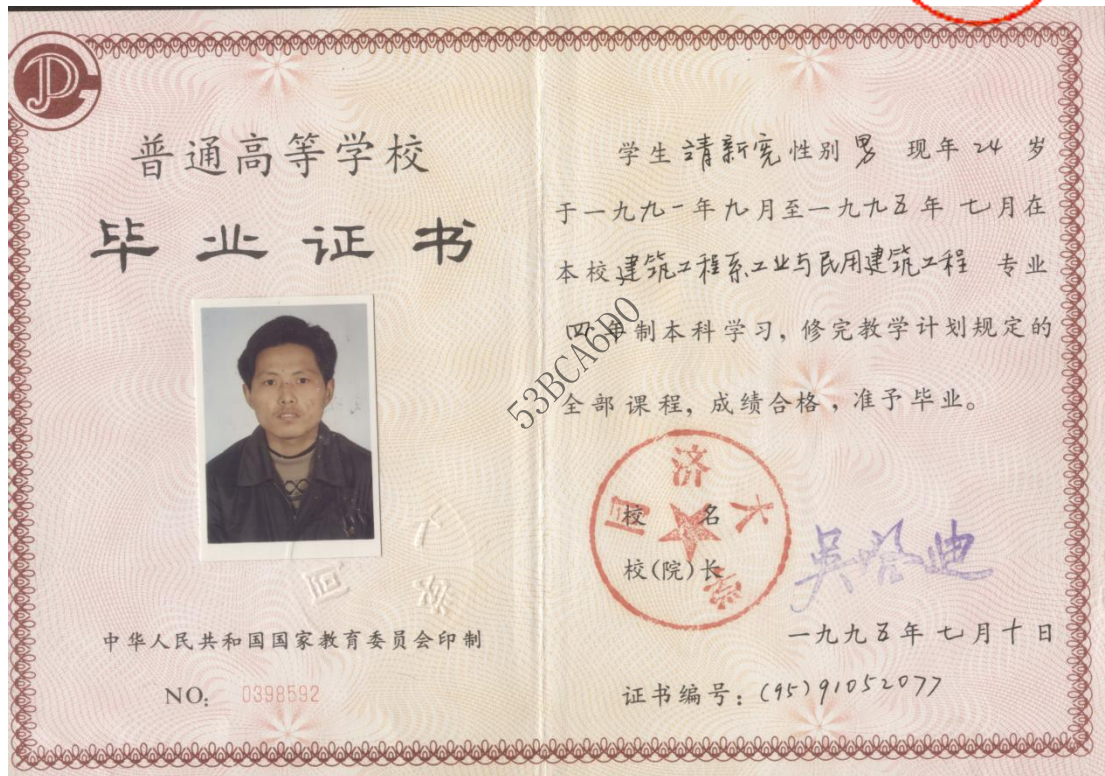 普通高等学校
毕业证书
中华人民共和国国家教育委员会印制
NO: 0398592
学生 靖新宪 性别 男 现年 24 岁
于一九九一年九月至一九九五年 七月在
本校建筑工程系工业与民用建筑工程 专业
四年制本科学习，修完教学计划规定的
全部课程，成绩合格，准予毕业。
53BCA6D0
同济大学
校名
校(院)长
吴启迪
一九九五年七月十日
证书编号：(95)91052077